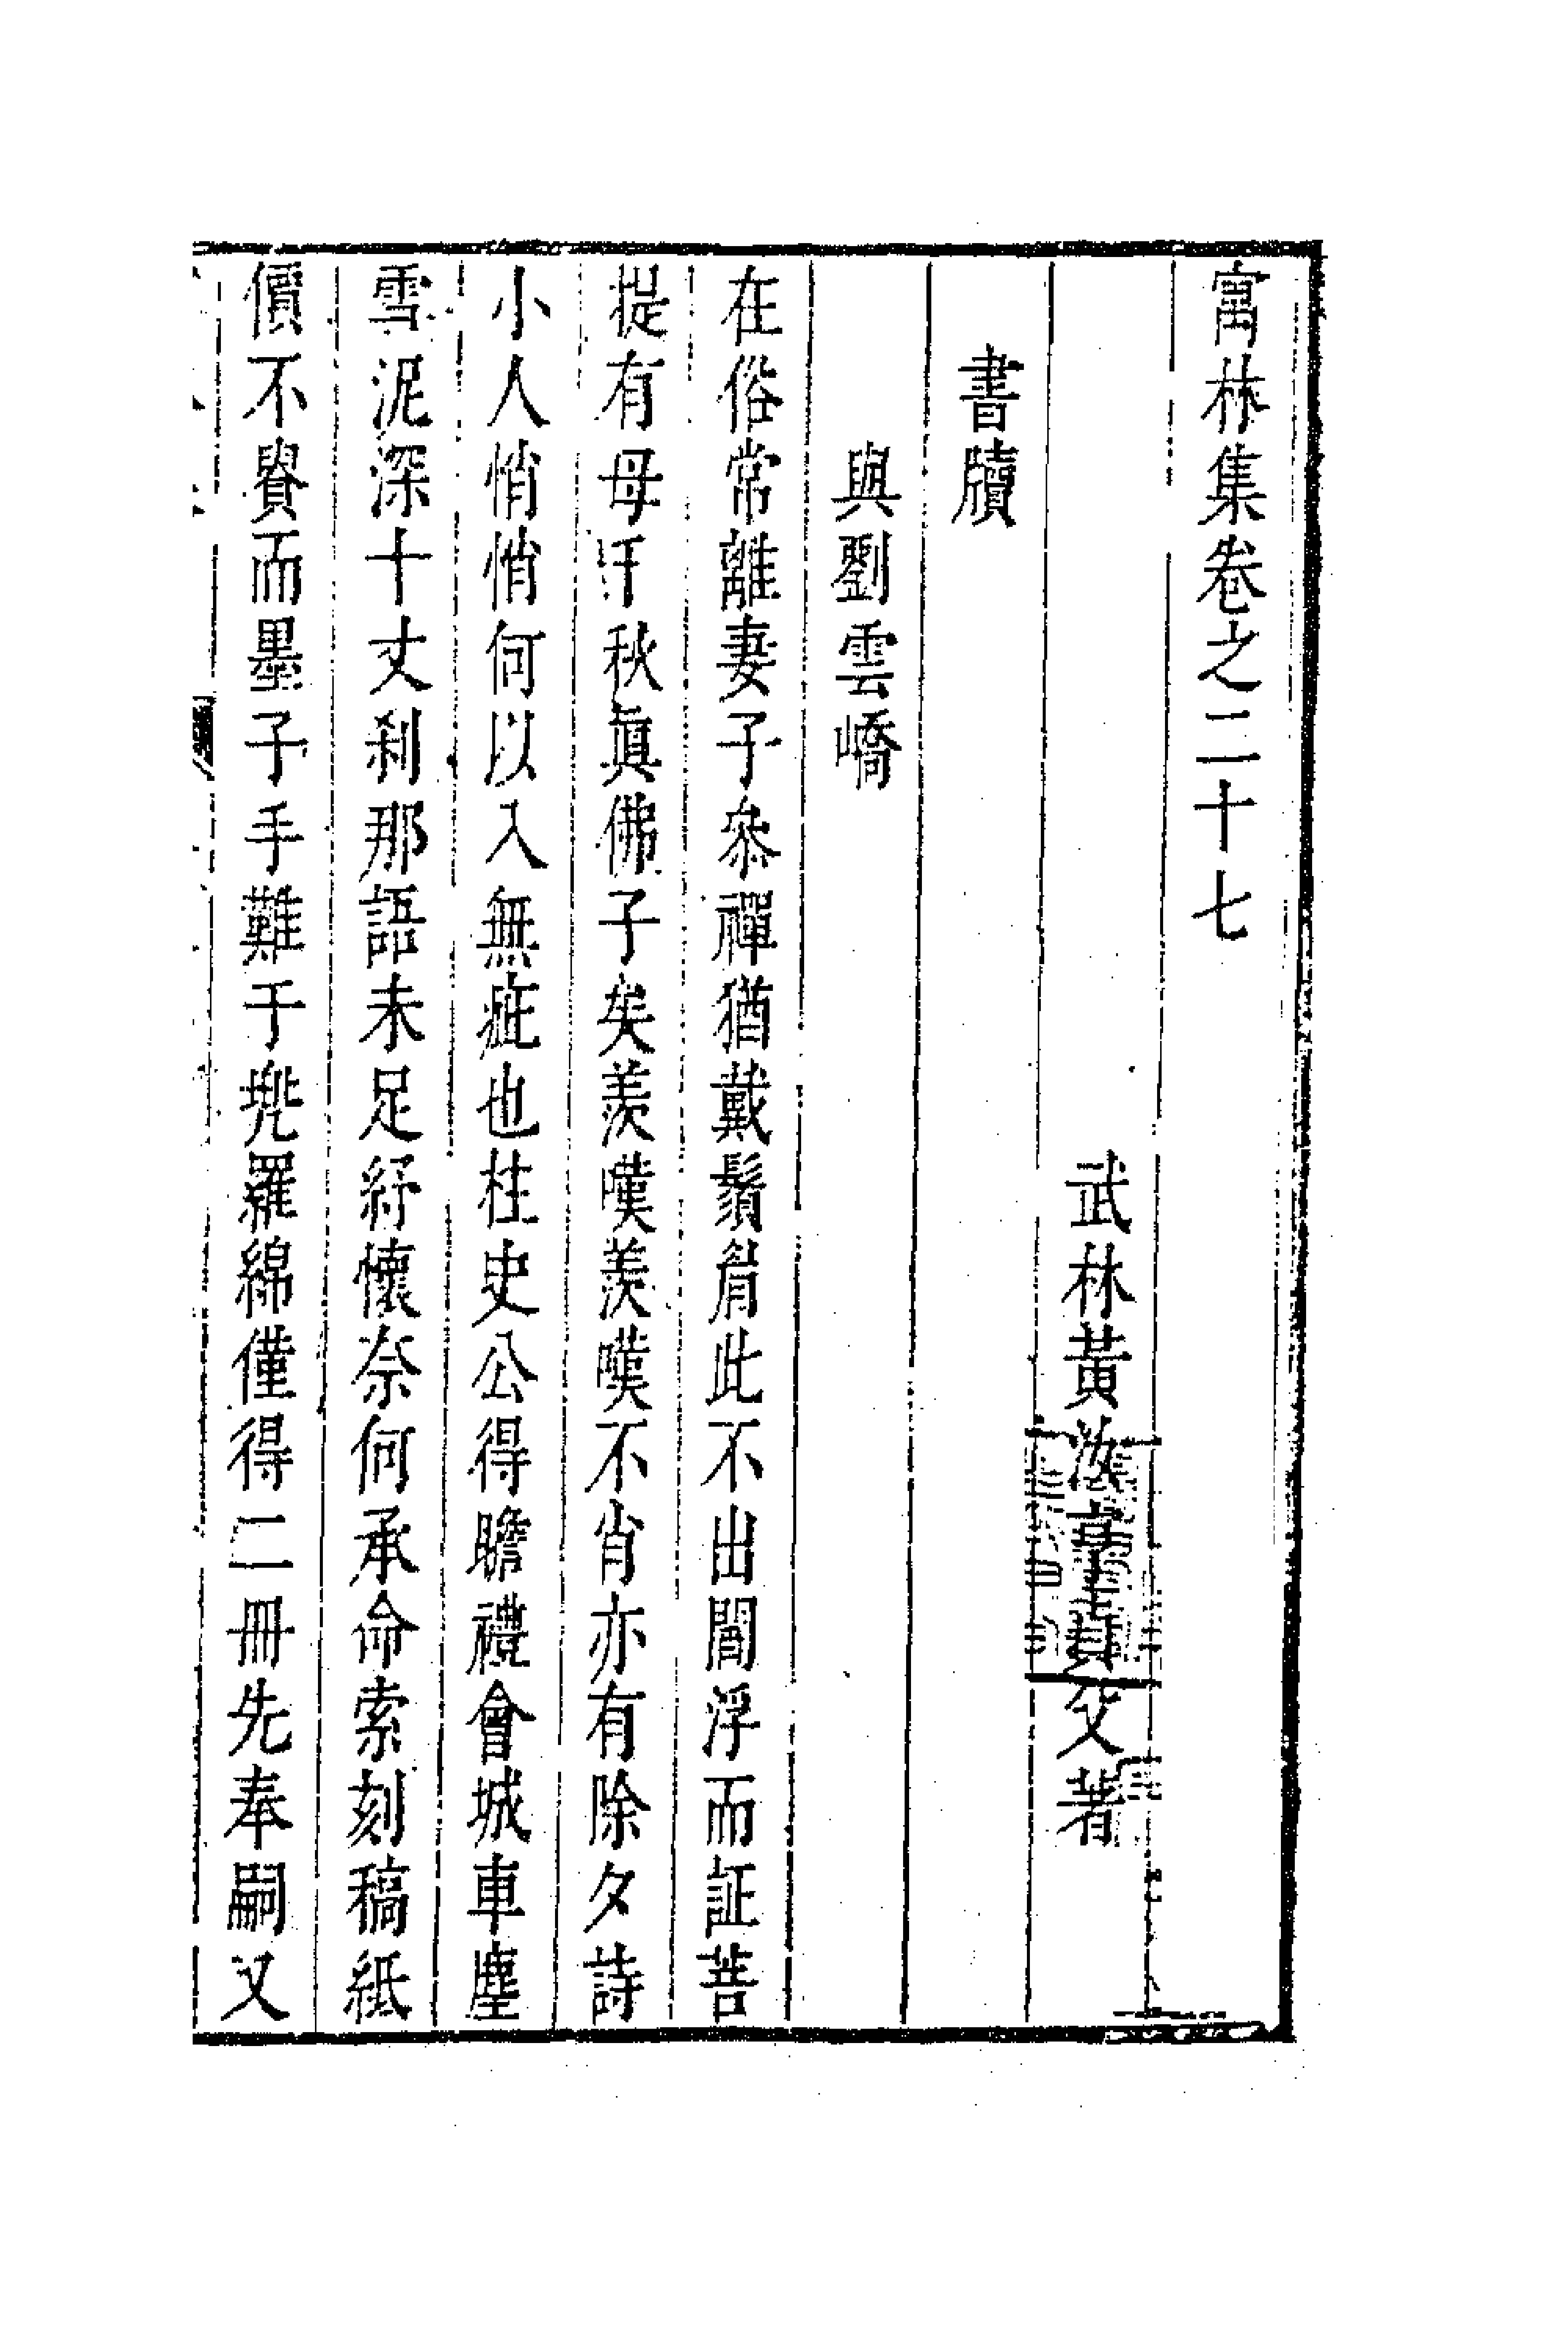 寓林集卷之二十七
武林黃汝亨貞父著
書牘
與劉雲嶠
在俗常離妻子叅禪猶戴鬚眉此不出閻浮而証菩
提有母千秋眞佛子矣羨嘆羨嘆不肖亦有除夕詩
小人悄悄何以入無疵也柱史公得瞻禮會城車塵
雪泥深十丈刹那語未足紓懷奈何承命索刻稿紙
價不貴而墨子手難于兠羅綿僅得二冊先奉嗣又